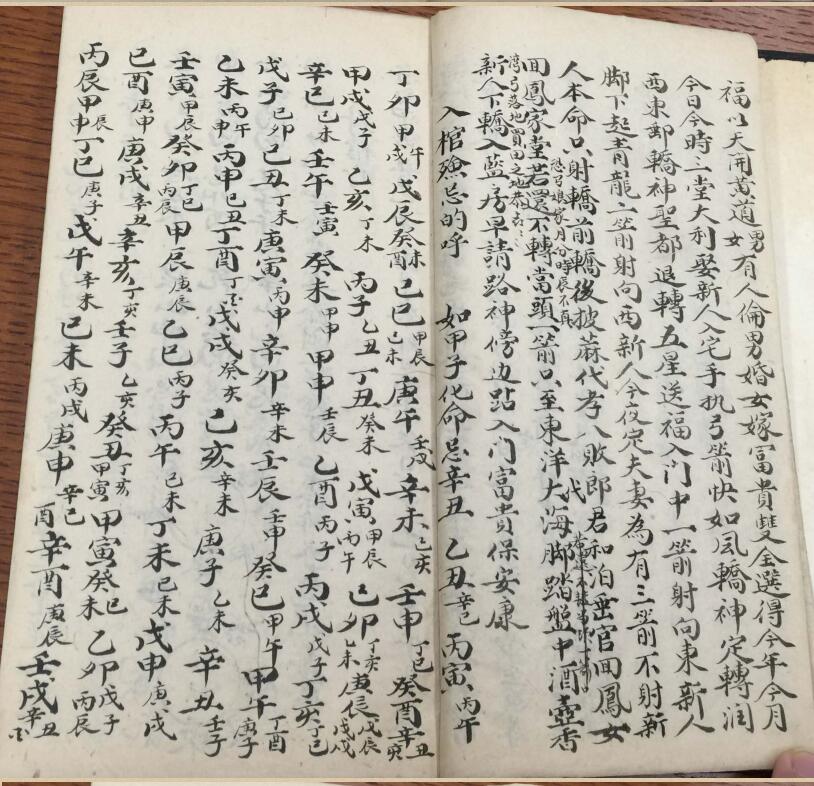 福以天開黃道男女有人倫男婚女嫁富貴雙全選得今年今月
今日今時三堂大利娶新人入宅手执弓箭快如風轎神定轉润
西東郵轎神聖都退轉五星送福入门中一箭射向東新人
脚下起青龍二箭射向西新人今後定夫妻為有三箭不射新
人本命只射轎前轎後披蔴代孝八敗郎君和泊垂官回鳳女
回鳳家堂若還不轉當頭一箭只至東洋大海脚踏盤中酒壺香
湾弓落地買田之地
新人下轎入蓝房早請路神傍边跕入门富貴保安康
入棺殮忌的呼 如甲子化命忌辛丑 乙丑辛巳 丙寅丙午
丁卯甲戌午 戊辰癸酉未 己巳甲辰己未 庚午壬戌 辛未己亥 壬申丁巳 癸酉辛亥丑
甲戌戊子 乙亥丁未 丙子乙丑 丁丑癸未 戊寅甲辰丙午 己卯丁亥乙未 庚辰戊辰戊戌
辛巳己未 壬午壬寅 癸未甲申 甲申壬辰 乙酉丙子 丙戌戊子 丁亥丁巳
戊子己卯 己丑丁未 庚寅丙申 辛卯辛未 壬辰壬申 癸巳甲午 甲午丁酉庚子
乙未丙午 丙申己丑 丁酉丁 戊戌癸亥 己亥辛未 庚子乙未 辛丑壬子
壬寅甲辰 癸卯丁巳丙辰 甲辰庚辰 乙巳丙子 丙午己未 丁未己未 戊申庚戌
己酉庚申 庚戌辛丑 辛亥丁亥 壬子乙亥 癸丑丁亥甲寅 甲寅癸未巳 乙卯戊子丙辰
丙辰甲申辰 丁巳庚子 戊午辛未 己未丙戌 庚申辛巳酉 辛酉庚辰 壬戌辛丑